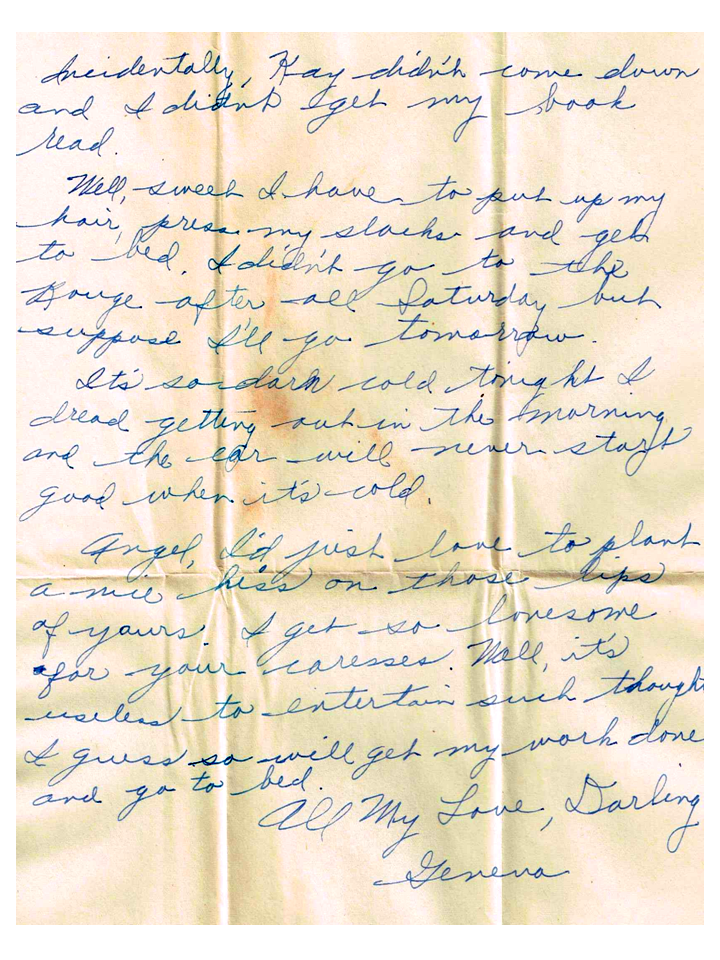 Incidentally, Kay didn't come down
and I didn't get my book
read.
Well, sweet I have to put up my
hair, press my slacks and get
to bed. I didn't go to the
Rouge after all Saturday but
suppose I'll go tomorrow.
It's so darn cold tonight I
dread getting out in the morning
and the car will never start
good when it's cold.
Angel, I'd just love to plant
a nice kiss on those lips
of yours. I get so lonesome
for your caresses. Well, it's
useless to entertain such thought
I guess so will get my work done
and go to bed.
All My Love, Darling
Geneva